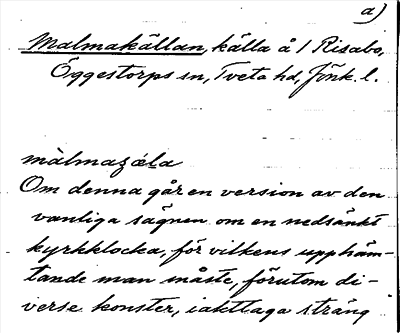 a)
Malmakällan, källa å 1 Risabo,
Öggestorps sn, Tveta hd, Jönk. l.
màlmaʒǽla
Om denna går en version av den
vanliga sägnen om en nedsänkt
kyrkklocka, för vilkens upphäm-
tande man måste, förutom di-
verse konster, iakttaga sträng